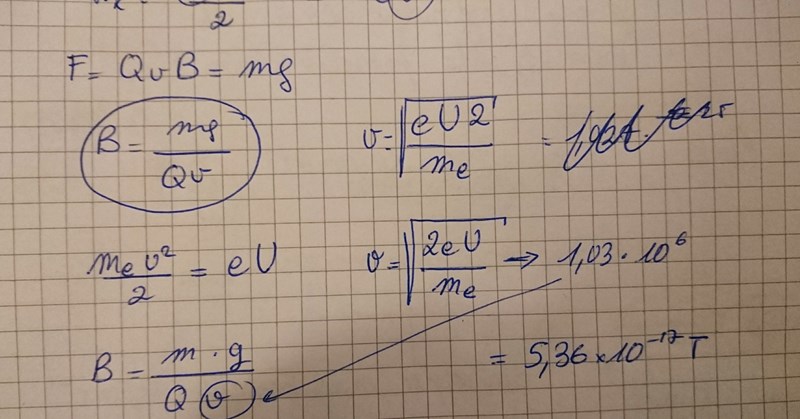 2
F = QvB = mg
B = mg / Qv
v = √(eU2 / me) =
me v² / 2 = eU
v = √(2eU / me) → 1,03 · 10⁶
B = m · g / Q v
= 5,36 × 10⁻¹⁷ T